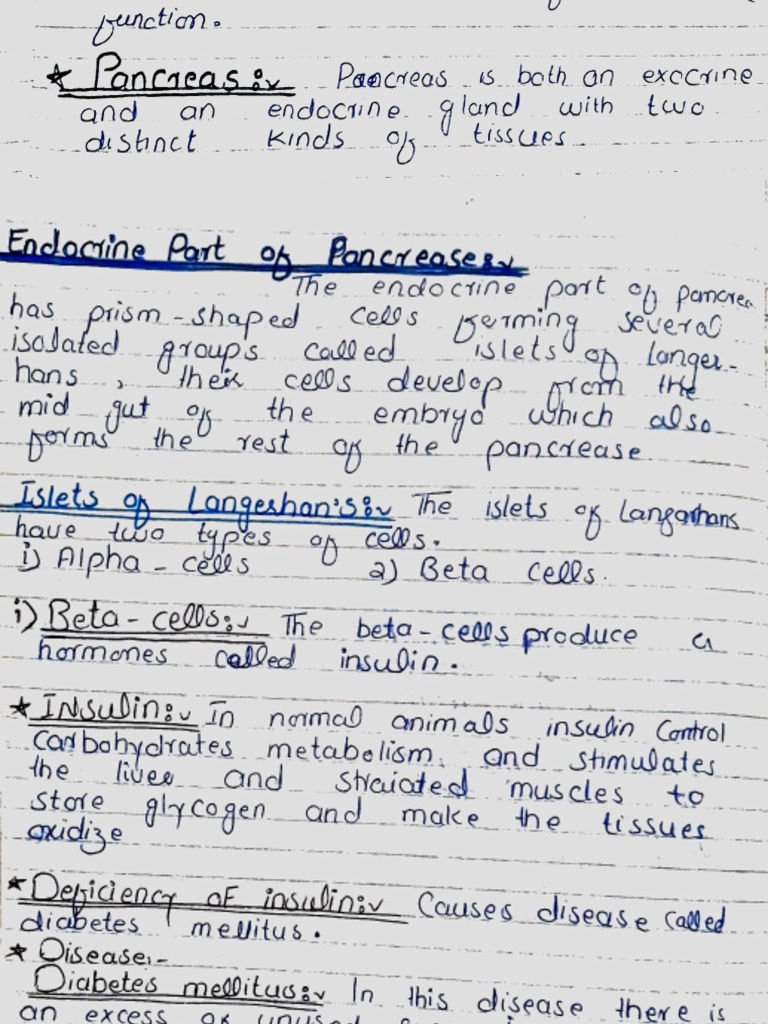 function.
★ Pancreas:~ Pancreas is both an exocrine
and an endocrine gland with two
distinct kinds of tissues.
Endocrine Part of Pancrease:~
The endocrine part of pancrea
has prism-shaped cells forming several
isolated groups called islets of Langer-
hans, their cells develop from the
mid gut of the embryo which also
forms the rest of the pancrease
Islets of Langeshan's:~ The islets of Langarhans
have two types of cells.
i) Alpha-cells 2) Beta cells.
i) Beta-cells:~ The beta-cells produce a
hormones called insulin.
★ INSulin:~ In normal animals insulin Control
Carbohydrates metabolism and stimulates
the livee and straiated muscles to
store glycogen and make the tissues
oxidize
★ Deficiency of insulin:~ Causes disease called
diabetes mellitus.
★ Disease:-
Diabetes mellitus:~ In this disease there is
an excess of